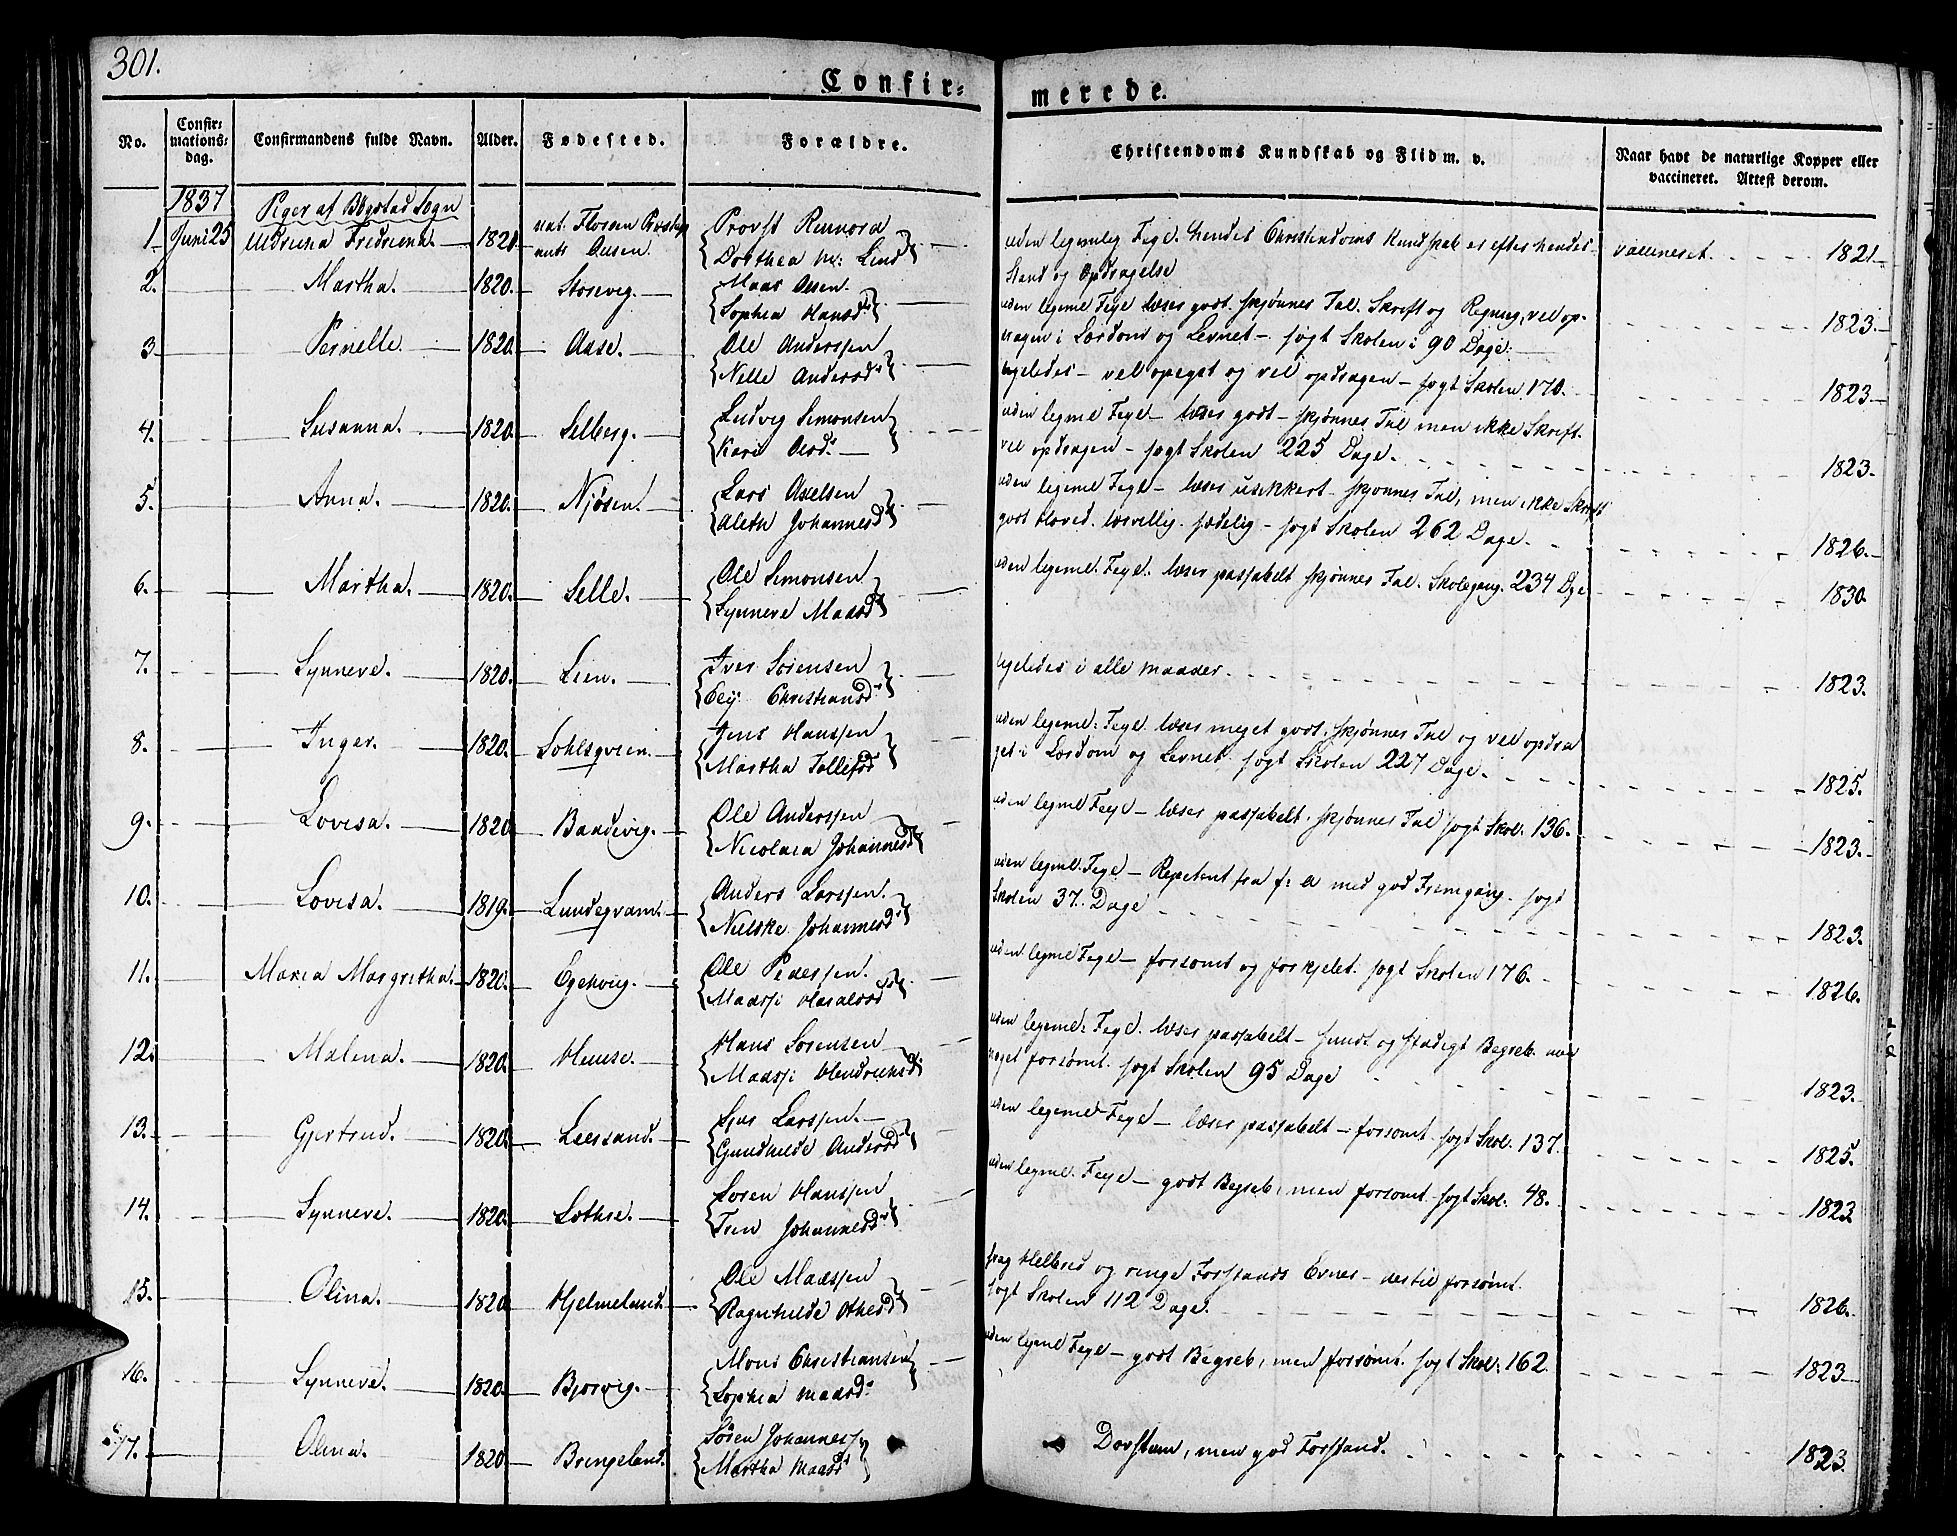 301.
Confir=
merede.
No.
Confir=
mations=
dag.
Confirmandens fulde Navn.
Alder.
Fødested.
Forældre.
Christendoms Kundskab og Flid m. v.
Naar havt de naturlige Kopper eller
vaccineret. Attest derom.
1837
Piger af Sogn
1. Juni 25 Fredrina. 1820 Provst
Dorthea Lind
uden legemlig Feyl. hendes Christendoms Kundskab er efter hendes
Stand og Opdragelse
vaccineret. 1821
2. Martha. 1820. Storevig.
Maas Olsen.
Sophia Hansd
uden legeml Feyl læser godt. skjønner Tal. Skrift og Regning, vel op-
dragen i Lærdom og Levnet - søgt Skolen i 90 Dage.
1823.
3. Pernelle. 1820. Aase.
Ole Anderssen
Nille Andersd
ligeledes - vel og vel opdragen - søgt Skolen 170.
1823
4. Susanna. 1820. Selberg.
Ludvig Simonsen
Kari Olsd.
uden legeml Feyl - læser godt - skjønner Tal men ikke Skrift.
vel opdragen - søgt Skolen 225 Dage.
1823.
5. Anna. 1820. Njøsen.
Lars Axelsen
Aleth Johannesd
uden legeml Feyl - læser usikkert - skjønner Tal, men ikke Skrift
godt Hoved. lærvillig. sædelig - søgt Skolen 262 Dage.
1826.
6. Martha. 1820. Selle.
Ole Simonsen
Synneve Maasd
uden legeml. Feyl. læser passabelt skjønner Tal. Skolegang. 234 Dge
1830.
7. Synneve. 1820. Leen.
Iver Sørensen
Christiansd
ligeledes i alle maader.
1823.
8. Inger. 1820.
Jens Hanssen
Martha Tollefsd
uden legeml: Feyl læser meget godt. skjønner Tal og vel opdra
get i Lærdom og Levnet. søgt Skolen 227 Dage.
1825.
9. Lovisa. 1820 Baadevig.
Ole Anderssen
Nicolaea Johannesd
uden legeml Feyl - læser passabelt. skjønner Tal søgt Skol. 136.
1823.
10. Lovisa. 1819.
Anders Larssen.
Nielske Johannesd
uden legeml. Feyl - Repetent fra f: a med god Fremgang. søgt
Skolen 37. Dage
1823.
11. Maria Margretha. 1820.
Ole Pederssen.
Madssi Haraldsd
uden legeml Feyl - forsømt og forkjelet. søgt Skolen 176.
1826.
12. Malena. 1820.
Hans Sørensen
Madssi Hendrichsd
uden legeml: Feyl. læser passabelt - sundt og stadigt Begreb.
noget forsømt. søgt Skolen 95 Dage
1823.
13. Gjertrud. 1820. Leersand.
Larssen.
Gundhilde Andersd
uden legeml Feyl - læser passabelt - forsømt. søgt Skol. 137.
1825.
14. Synneve. 1820. Lothse.
Søren Hanssen
Johannesd
uden legeml. Feyl - godt Begreb, men forsømt søgt Skol. 48.
1823
15. Olina. 1820. Hjelmeland.
Ole Madssen
Ragnhilde
svag Helbred og ringe Forstands Evner - forsømt.
søgt Skolen 112 Dage.
1826.
16. Synneve. 1820.
Mons Christiansen
Sophia Maasd.
uden legeml Feyl - godt Begreb, men forsømt. søgt Skol: 162
1823
17. Olina. 1820 Bringeland.
Søren Johanness
Martha Maasd
men god Forstand.
1823.